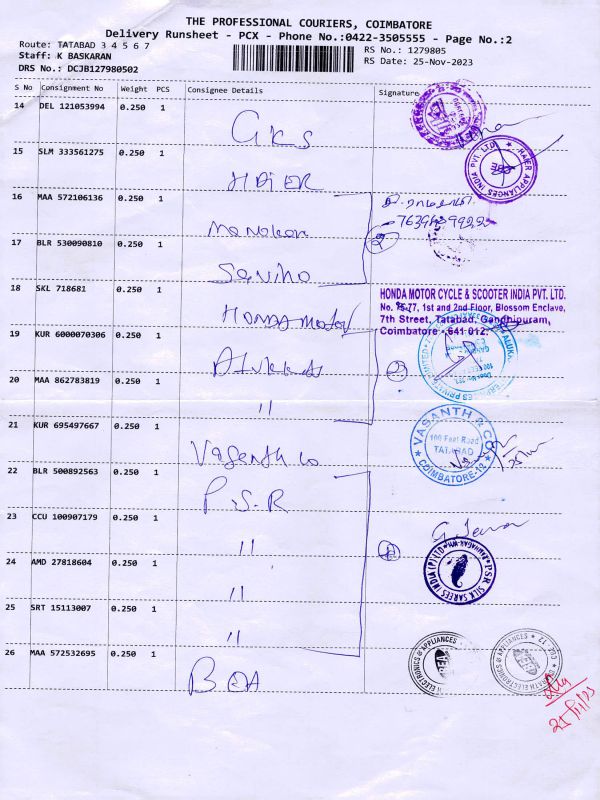 THE PROFESSIONAL COURIERS, COIMBATORE
Delivery Runsheet - PCX - Phone No.:0422-3505555 - Page No.:2
Route: TATABAD 3 4 5 6 7
RS No.: 1279805
Staff: K BASKARAN
RS Date: 25-Nov-2023
DRS No.: DCJB127980502
S No Consignment No Weight PCS Consignee Details Signature
14 DEL 121053994 0.250 1 GKS
15 SLM 333561275 0.250 1 HAiER
HAIER APPLIANCES INDIA PVT. LTD.
16 MAA 572106136 0.250 1
17 BLR 530090810 0.250 1
2
18 SKL 718681 0.250 1 HONDA MOTOR
HONDA MOTOR CYCLE & SCOOTER INDIA PVT. LTD.
No. 75-77, 1st and 2nd Floor, Blossom Enclave,
7th Street, Tatabad, Gandhipuram,
Coimbatore - 641 012.
19 KUR 6000070306 0.250 1
20 MAA 862783819 0.250 1 "
21 KUR 695497667 0.250 1 Vasanth co
VASANTH & CO
100 Feet Road
TATABAD
COIMBATORE-12
22 BLR 500892563 0.250 1 P.S.R
23 CCU 100907179 0.250 1 "
24 AMD 27818604 0.250 1 "
PSR SILK SAREES INDIA (P) LTD
25 SRT 15113007 0.250 1 "
26 MAA 572532695 0.250 1
ELECTRONICS & APPLIANCES
25/11/23